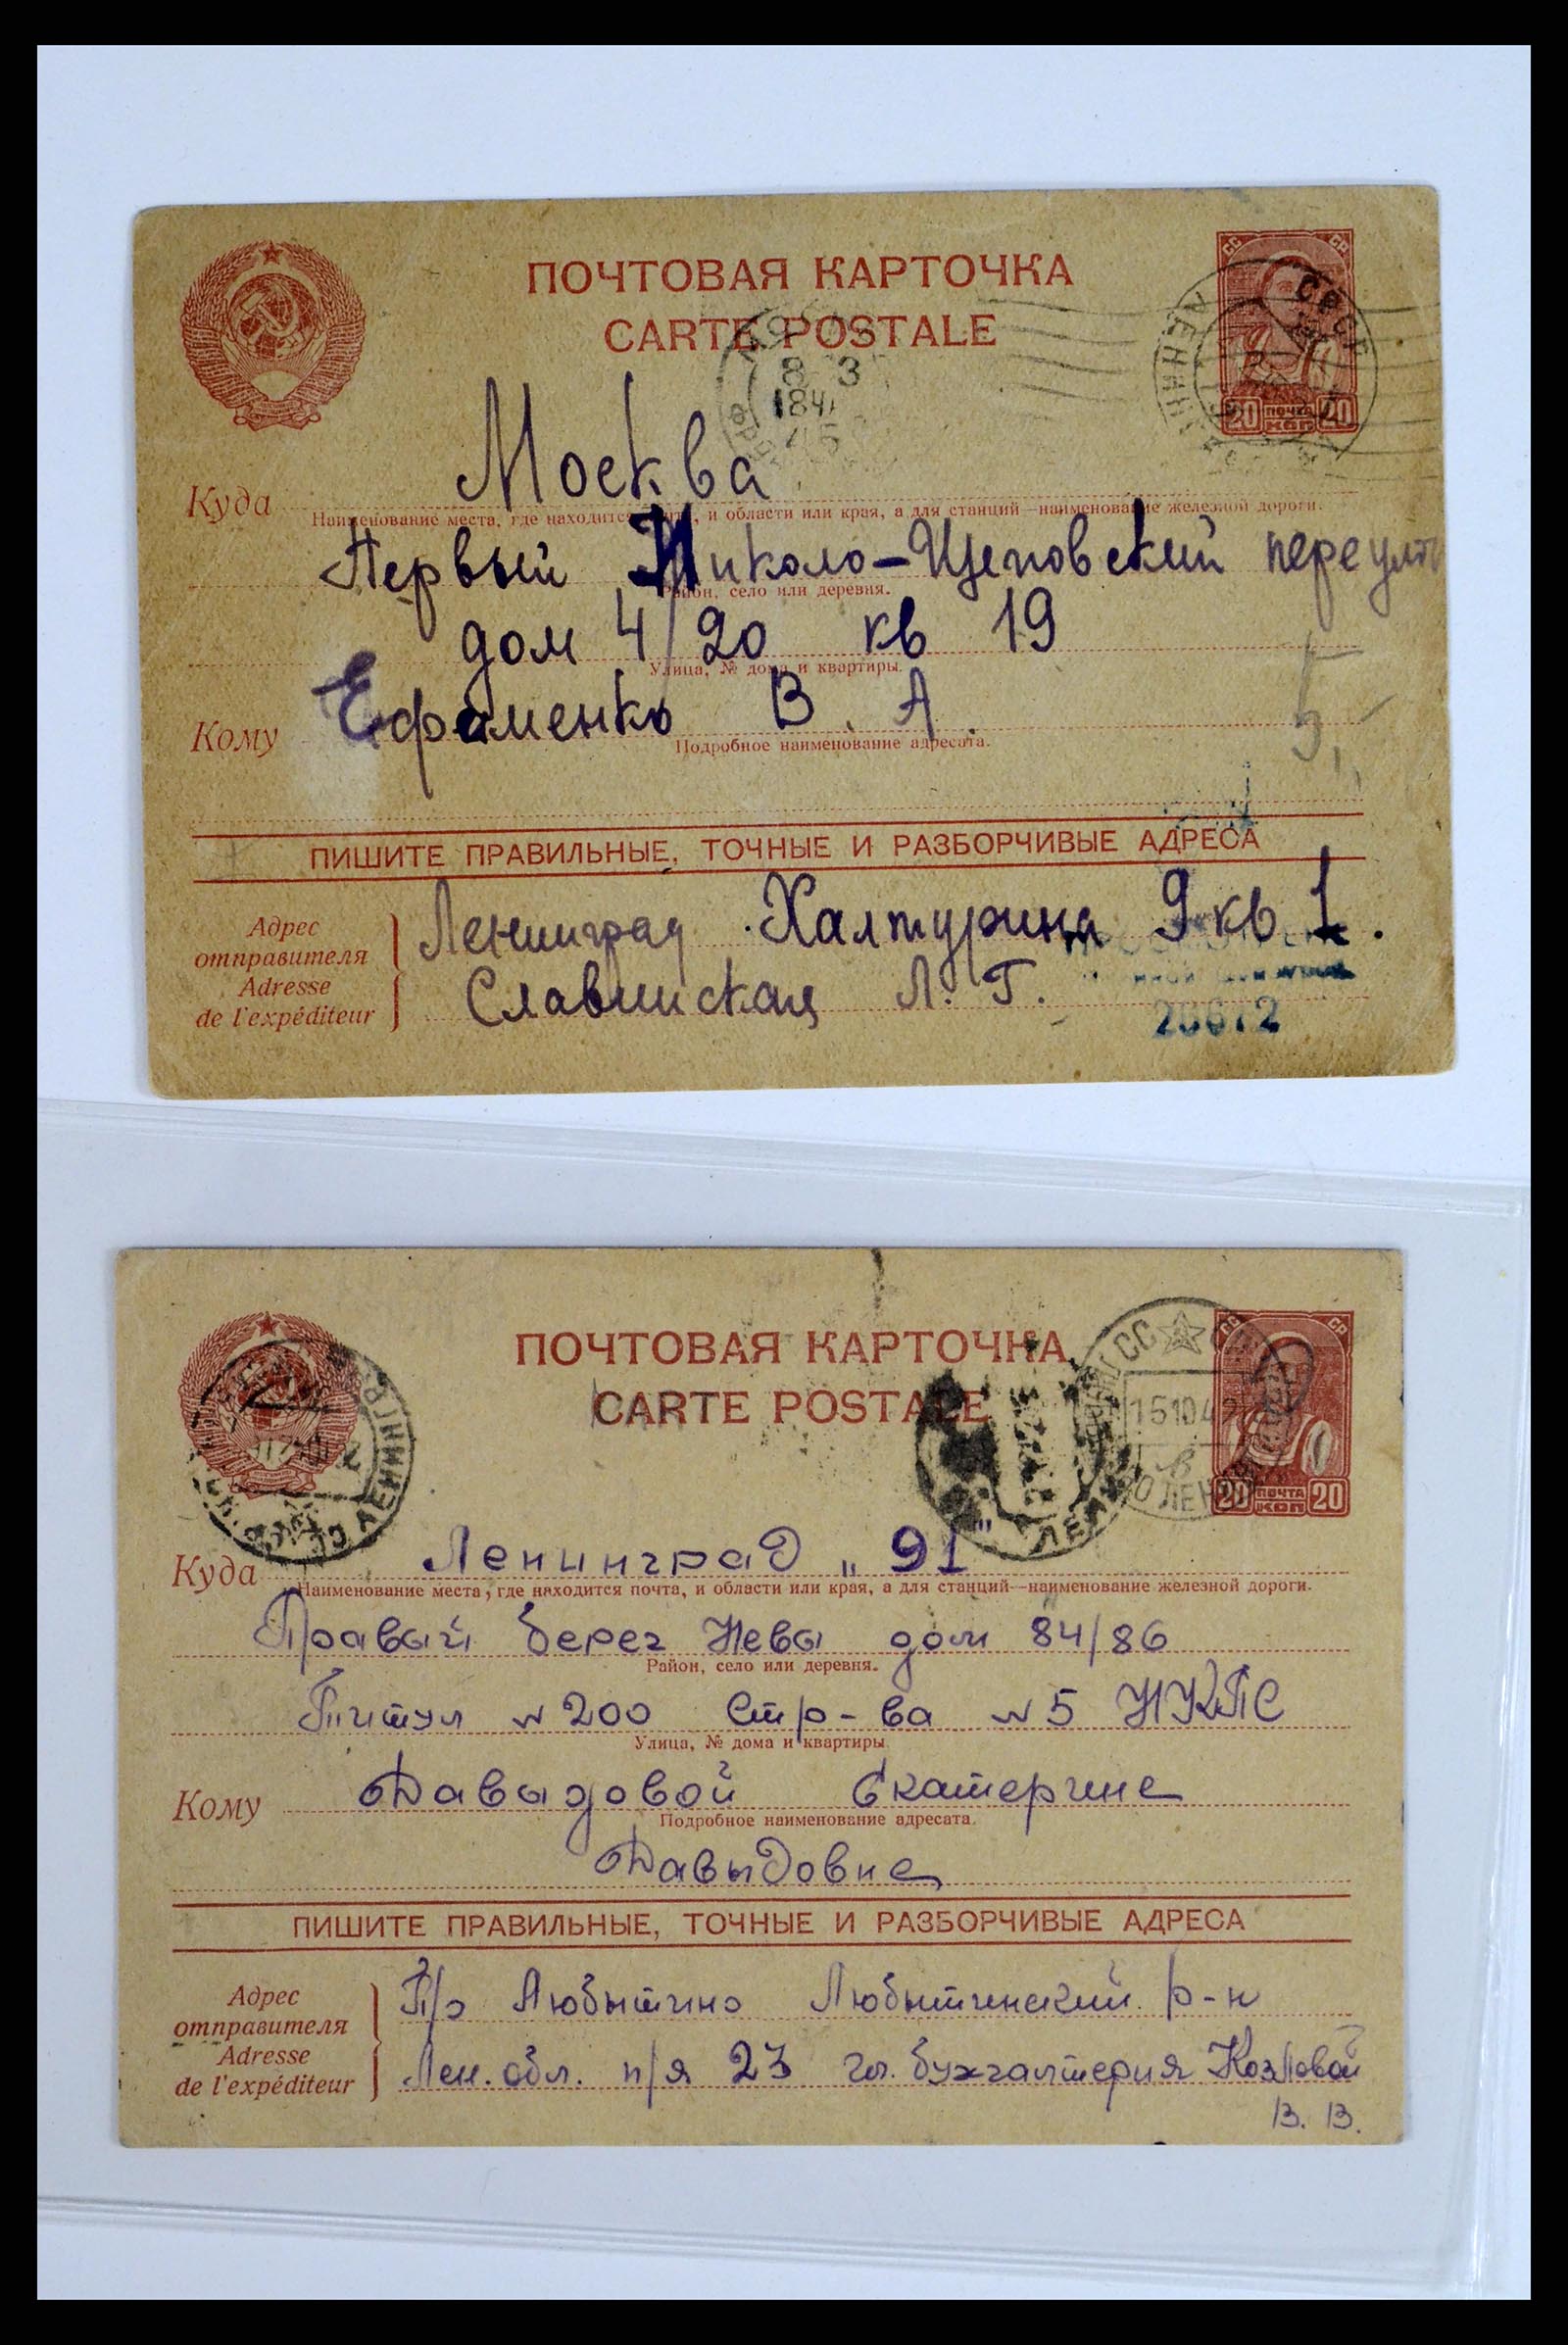 ПОЧТОВАЯ КАРТОЧКА
CARTE POSTALE
СС СР
20 ПОЧТА КОП 20
8 3
45
Куда Москва
Наименование места, где находится почта, и области или края, а для станций—наименование железной дороги.
Первый Николо-Щеповский переул
Район, село или деревня.
дом 4/20 кв 19
Улица, № дома и квартиры.
Кому Ефаменко В. А.
Подробное наименование адресата.
5
ПИШИТЕ ПРАВИЛЬНЫЕ, ТОЧНЫЕ И РАЗБОРЧИВЫЕ АДРЕСА
Адрес отправителя
Adresse de l'expéditeur
Ленинград. Халтурина 9 кв 1.
Славинская Л. Г.
ПОЧТОВАЯ КАРТОЧКА
CARTE POSTALE
СС СР
20 ПОЧТА КОП 20
151042
ЛЕНИНГРАД
Куда Ленинград „91"
Наименование места, где находится почта, и области или края, а для станций—наименование железной дороги.
Правый берег Невы дом 84/86
Район, село или деревня.
Питул №200 Стр-ва №5 НКПС
Улица, № дома и квартиры.
Кому Давыдовой Екатерине
Подробное наименование адресата.
Давыдовне
ПИШИТЕ ПРАВИЛЬНЫЕ, ТОЧНЫЕ И РАЗБОРЧИВЫЕ АДРЕСА
Адрес отправителя
Adresse de l'expéditeur
П/о Любытино Любытинский р-н
Лен. обл. п/я 23 гл. бухгалтерия Козловой
В. В.